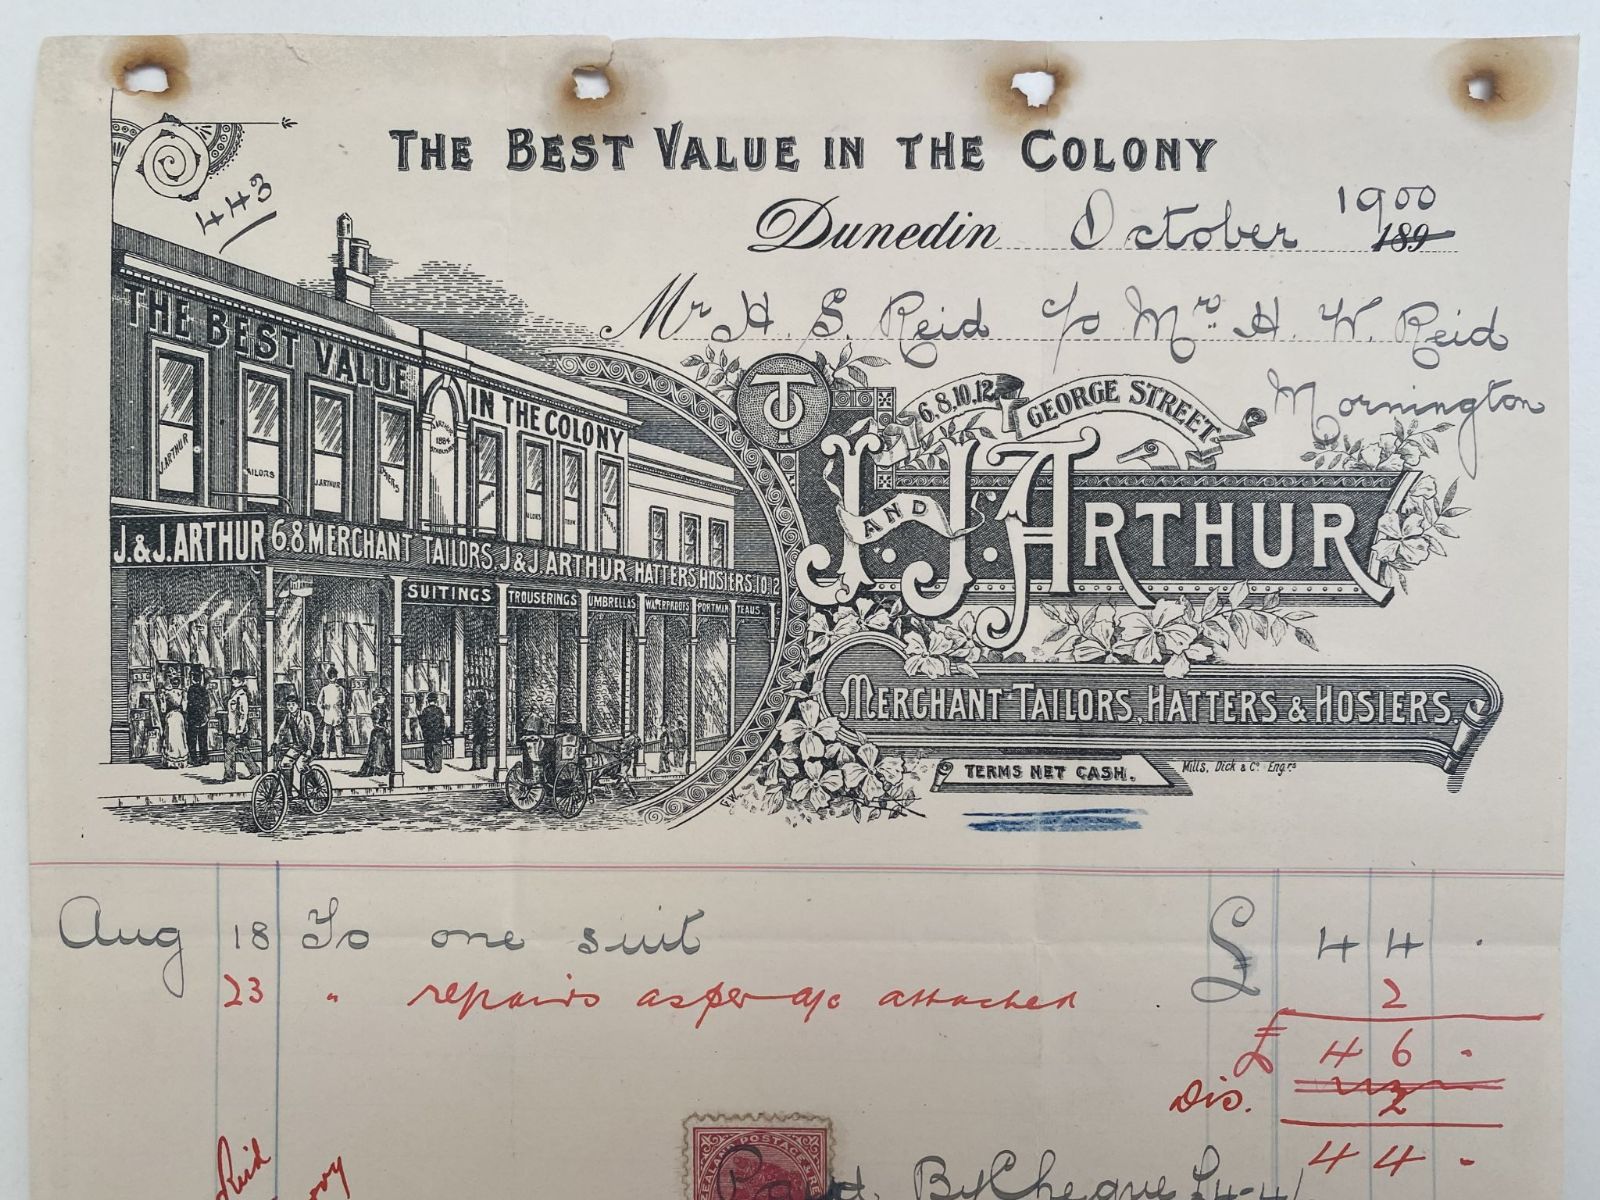 THE BEST VALUE IN THE COLONY
443
Dunedin October 1900
189
Mr H. S. Reid c/o Mrs H. W. Reid
Mornington
THE BEST VALUE IN THE COLONY
J. ARTHUR
TAILORS
J. ARTHUR
1884
J. & J. ARTHUR 6.8. MERCHANT TAILORS, J & J. ARTHUR. HATTERS HOSIERS. 10. 12
SUITINGS TROUSERINGS UMBRELLAS WATERPROOFS PORTMANTEAUS.
6, 8, 10, 12 GEORGE STREET
J. AND J. ARTHUR
MERCHANT TAILORS, HATTERS & HOSIERS.
TERMS NET CASH.
Mills, Dick & Co. Engrs
Aug 18 To one suit £ 4 4 .
23 " repairs as per a/c attached . 2
£ 4 6 .
Dis. 2
4 4 .
Reid
ZEALAND POSTAGE & RE
Paid. By Cheque £4-4/